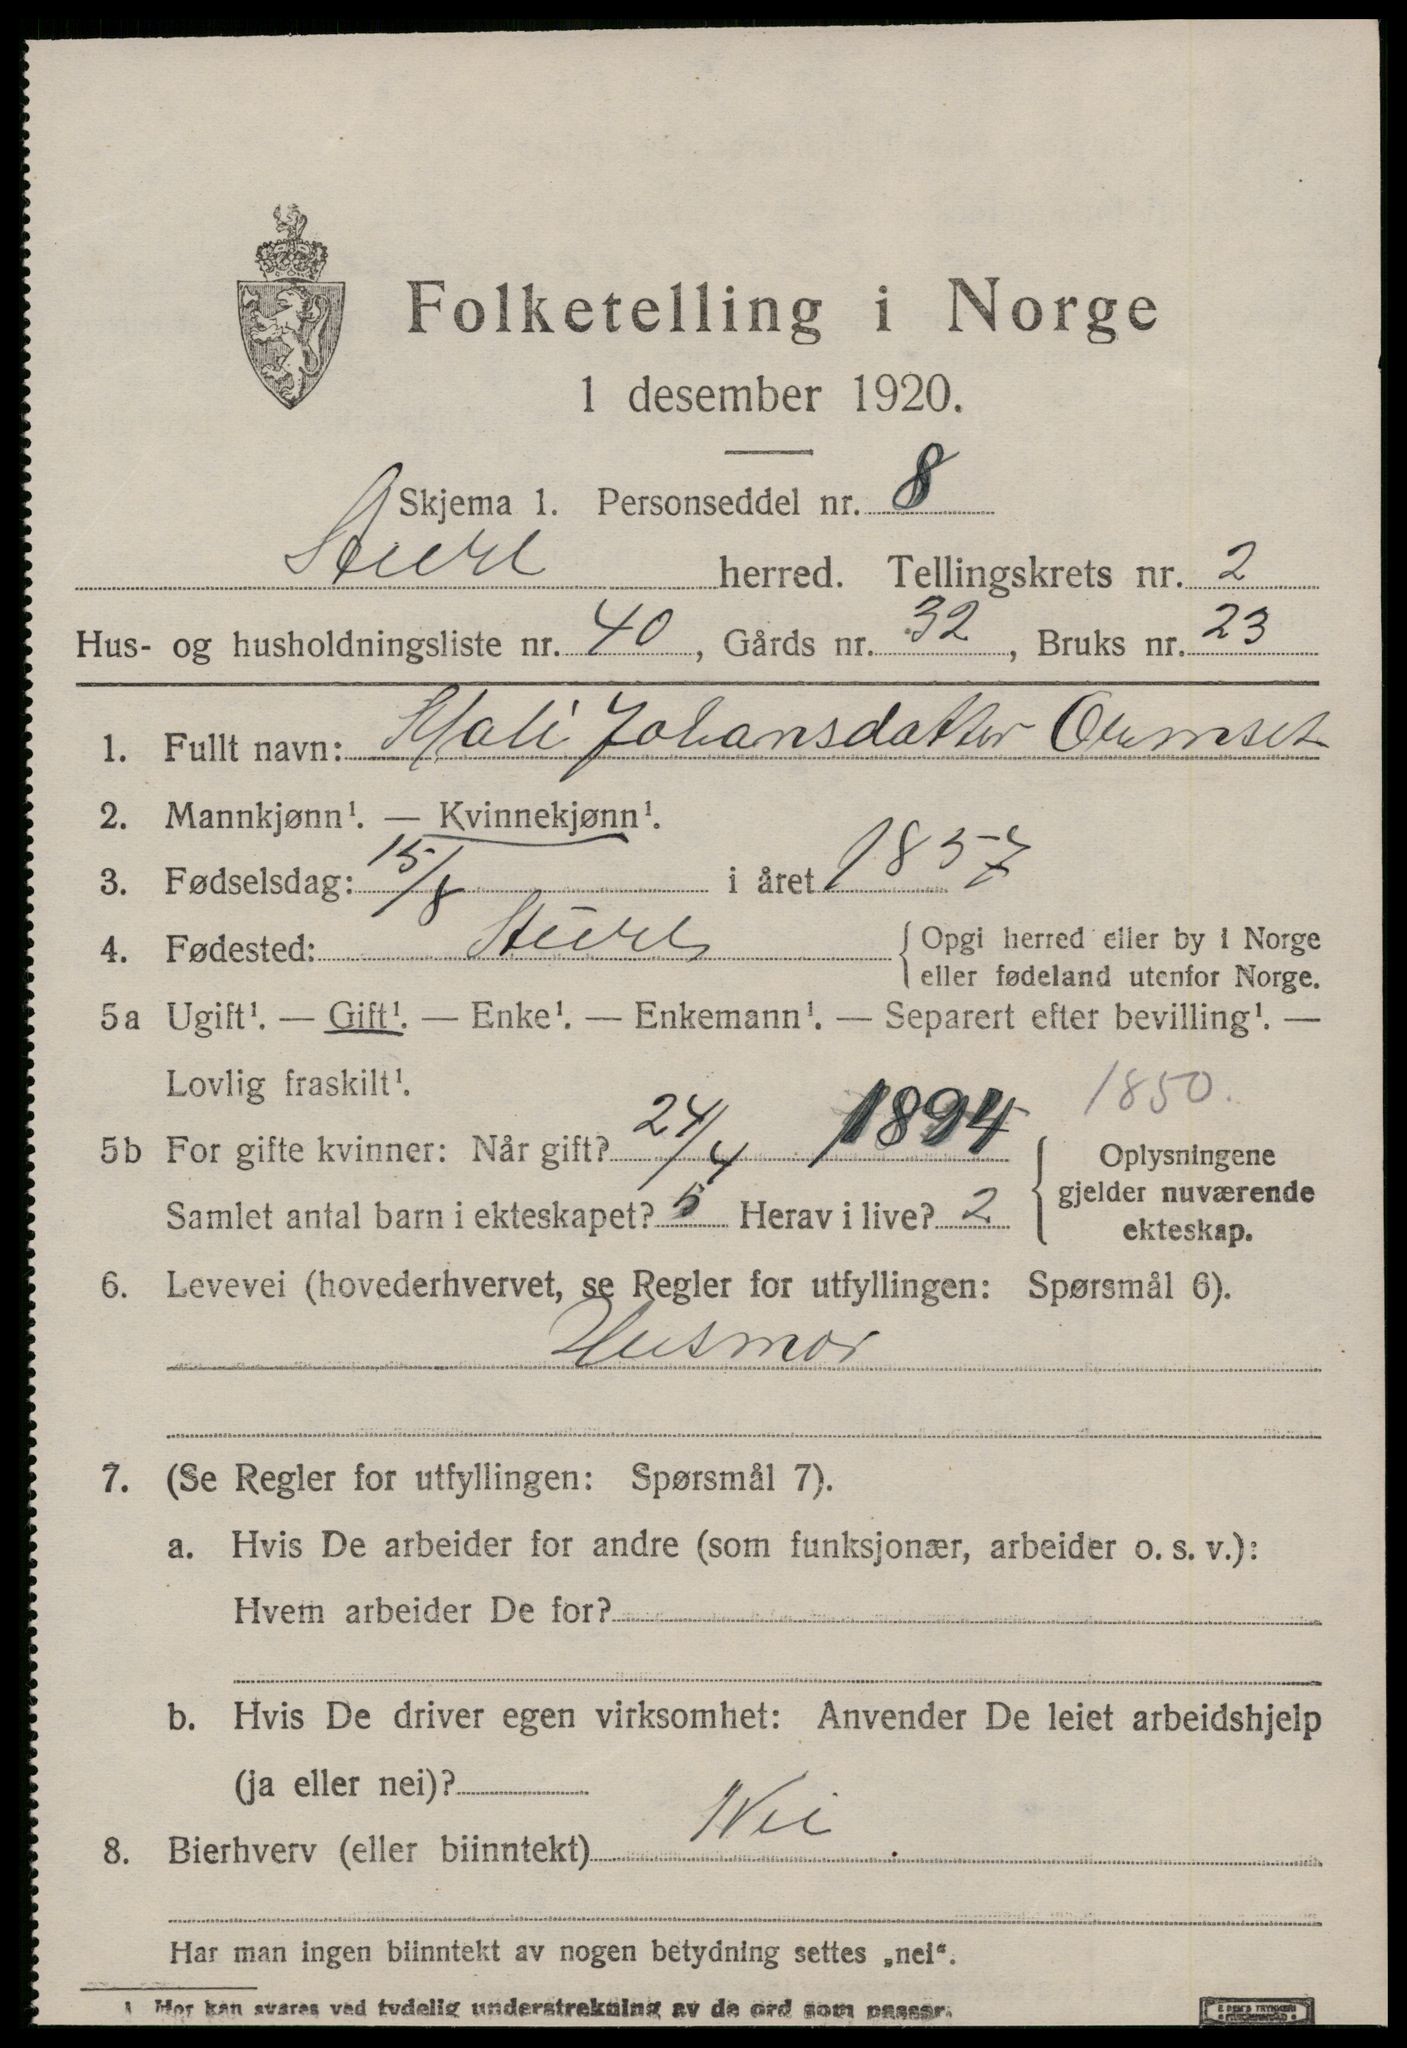 Folketelling i Norge
1 desember 1920.
Skjema 1. Personseddel nr. 8
herred. Tellingskrets nr. 2
Hus- og husholdningsliste nr. 40, Gårds nr. 32, Bruks nr. 23
1. Fullt navn: Mali Johansdatter
2. Mannkjønn¹. — Kvinnekjønn¹.
3. Fødselsdag: 15/8 i året 1857
4. Fødested: {Opgi herred eller by i Norge
eller fødeland utenfor Norge.
5a Ugift¹. — Gift¹. — Enke¹. — Enkemann¹. — Separert efter bevilling¹. —
Lovlig fraskilt¹.
1850.
5b For gifte kvinner: Når gift? 24/4 1894 { Oplysningene
gjelder nuværende
ekteskap.
Samlet antal barn i ekteskapet? 5 Herav i live? 2
6. Levevei (hovederhvervet, se Regler for utfyllingen: Spørsmål 6).
Husmor
7. (Se Regler for utfyllingen: Spørsmål 7).
a. Hvis De arbeider for andre (som funksjonær, arbeider o. s. v.):
Hvem arbeider De for?
b. Hvis De driver egen virksomhet: Anvender De leiet arbeidshjelp
(ja eller nei)?
8. Bierhverv (eller biinntekt) Nei
Har man ingen biinntekt av nogen betydning settes „nei“.
1 Her kan svares ved tydelig understrekning av de ord som passer.